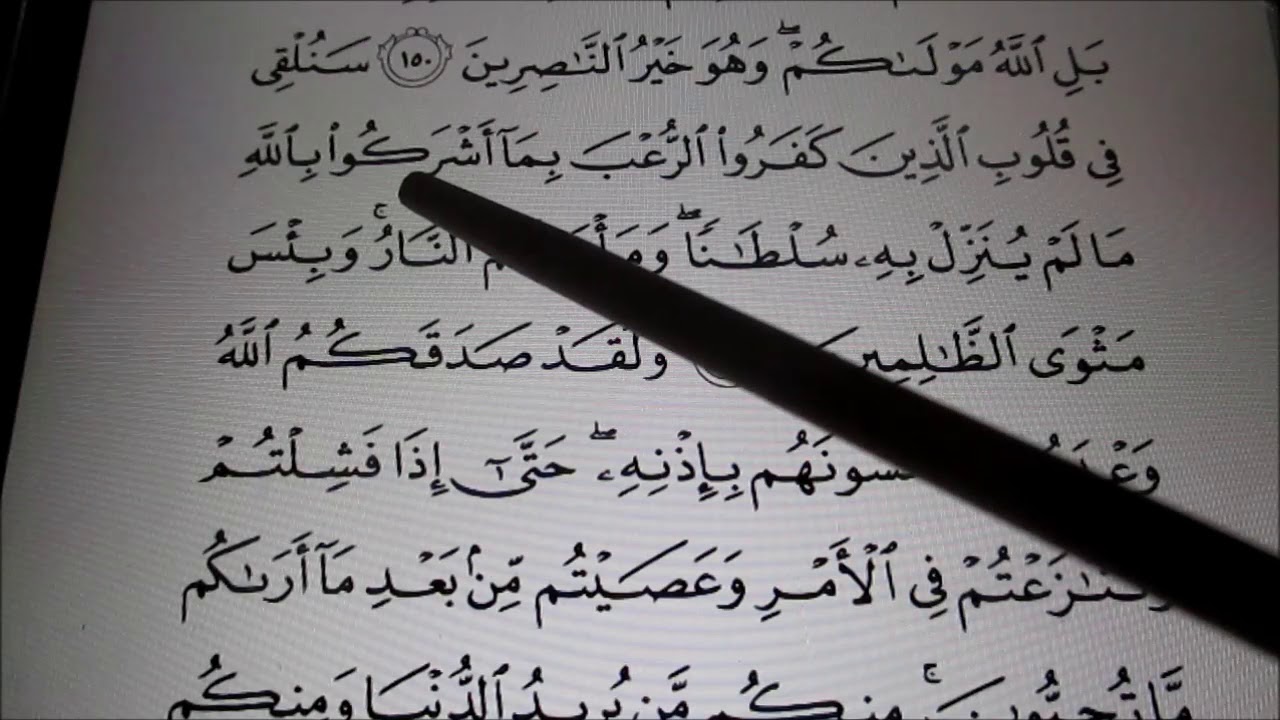 بَلِ ٱللَّهُ مَوْلَىٰكُمْ ۖ وَهُوَ خَيْرُ ٱلنَّـٰصِرِينَ ١٥٠ سَنُلْقِى
فِى قُلُوبِ ٱلَّذِينَ كَفَرُوا۟ ٱلرُّعْبَ بِمَآ أَشْرَكُوا۟ بِٱللَّهِ
مَا لَمْ يُنَزِّلْ بِهِۦ سُلْطَـٰنًا ۖ ٱلنَّارُ ۚ وَبِئْسَ
مَثْوَى ٱلظَّـٰلِمِينَ وَلَقَدْ صَدَقَكُمُ ٱللَّهُ
بِإِذْنِهِۦ ۖ حَتَّىٰٓ إِذَا فَشِلْتُمْ
وَتَنَـٰزَعْتُمْ فِى ٱلْأَمْرِ وَعَصَيْتُم مِّنۢ بَعْدِ مَآ أَرَىٰكُم
مَّا تُحِبُّونَ ۚ مِنكُم مَّن يُرِيدُ ٱلدُّنْيَا وَمِنكُم